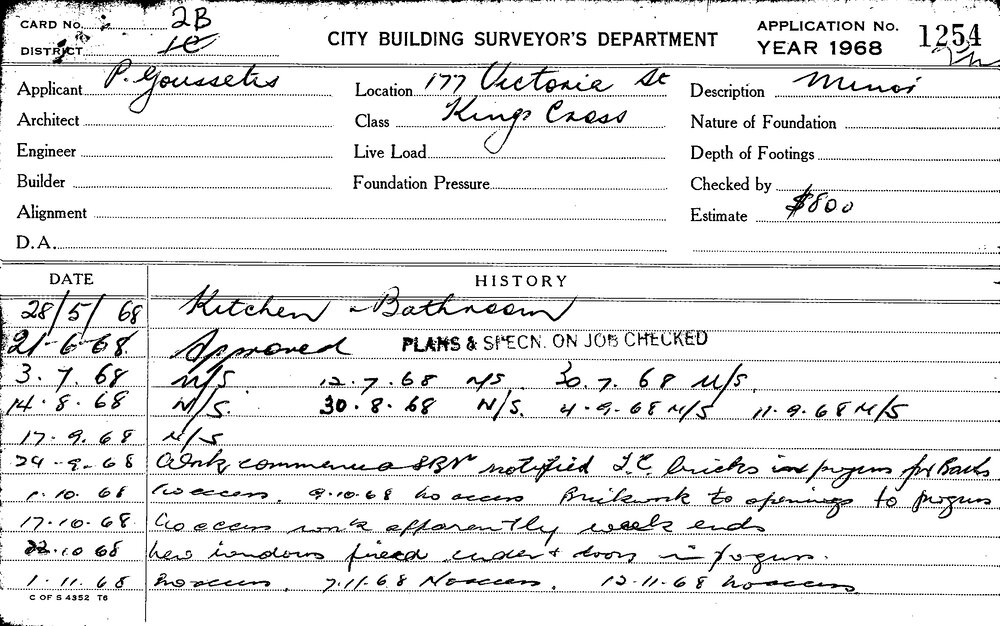 CARD No. 2B
DISTRICT
CITY BUILDING SURVEYOR'S DEPARTMENT
APPLICATION No. 1254
YEAR 1968
Applicant P. Goussetis
Location 177 Victoria St
Description Minor
Architect
Class Kings Cross
Nature of Foundation
Engineer
Live Load
Depth of Footings
Builder
Foundation Pressure
Checked by
Alignment
Estimate $800
D.A.
DATE HISTORY
28/5/68 Kitchen & Bathroom
21-6-68. Approved PLANS & SPECN. ON JOB CHECKED
3.7.68 N/S. 12.7.68 N/S 30.7.68 N/S.
14.8.68 N/S. 30.8.68 N/S. 4.9.68 N/S 11.9.68 N/S
17.9.68 N/S
24.9.68 Work commenced notified T.C. bricks in progress for Bath
1.10.68 No access. 9.10.68 No access Brickwork to openings to progress
17.10.68. No access work apparently week ends
22.10.68 New windows fixed under & doors in progress.
1.11.68 No access. 7.11.68 No access. 12.11.68 No access
C OF S 4352 T6